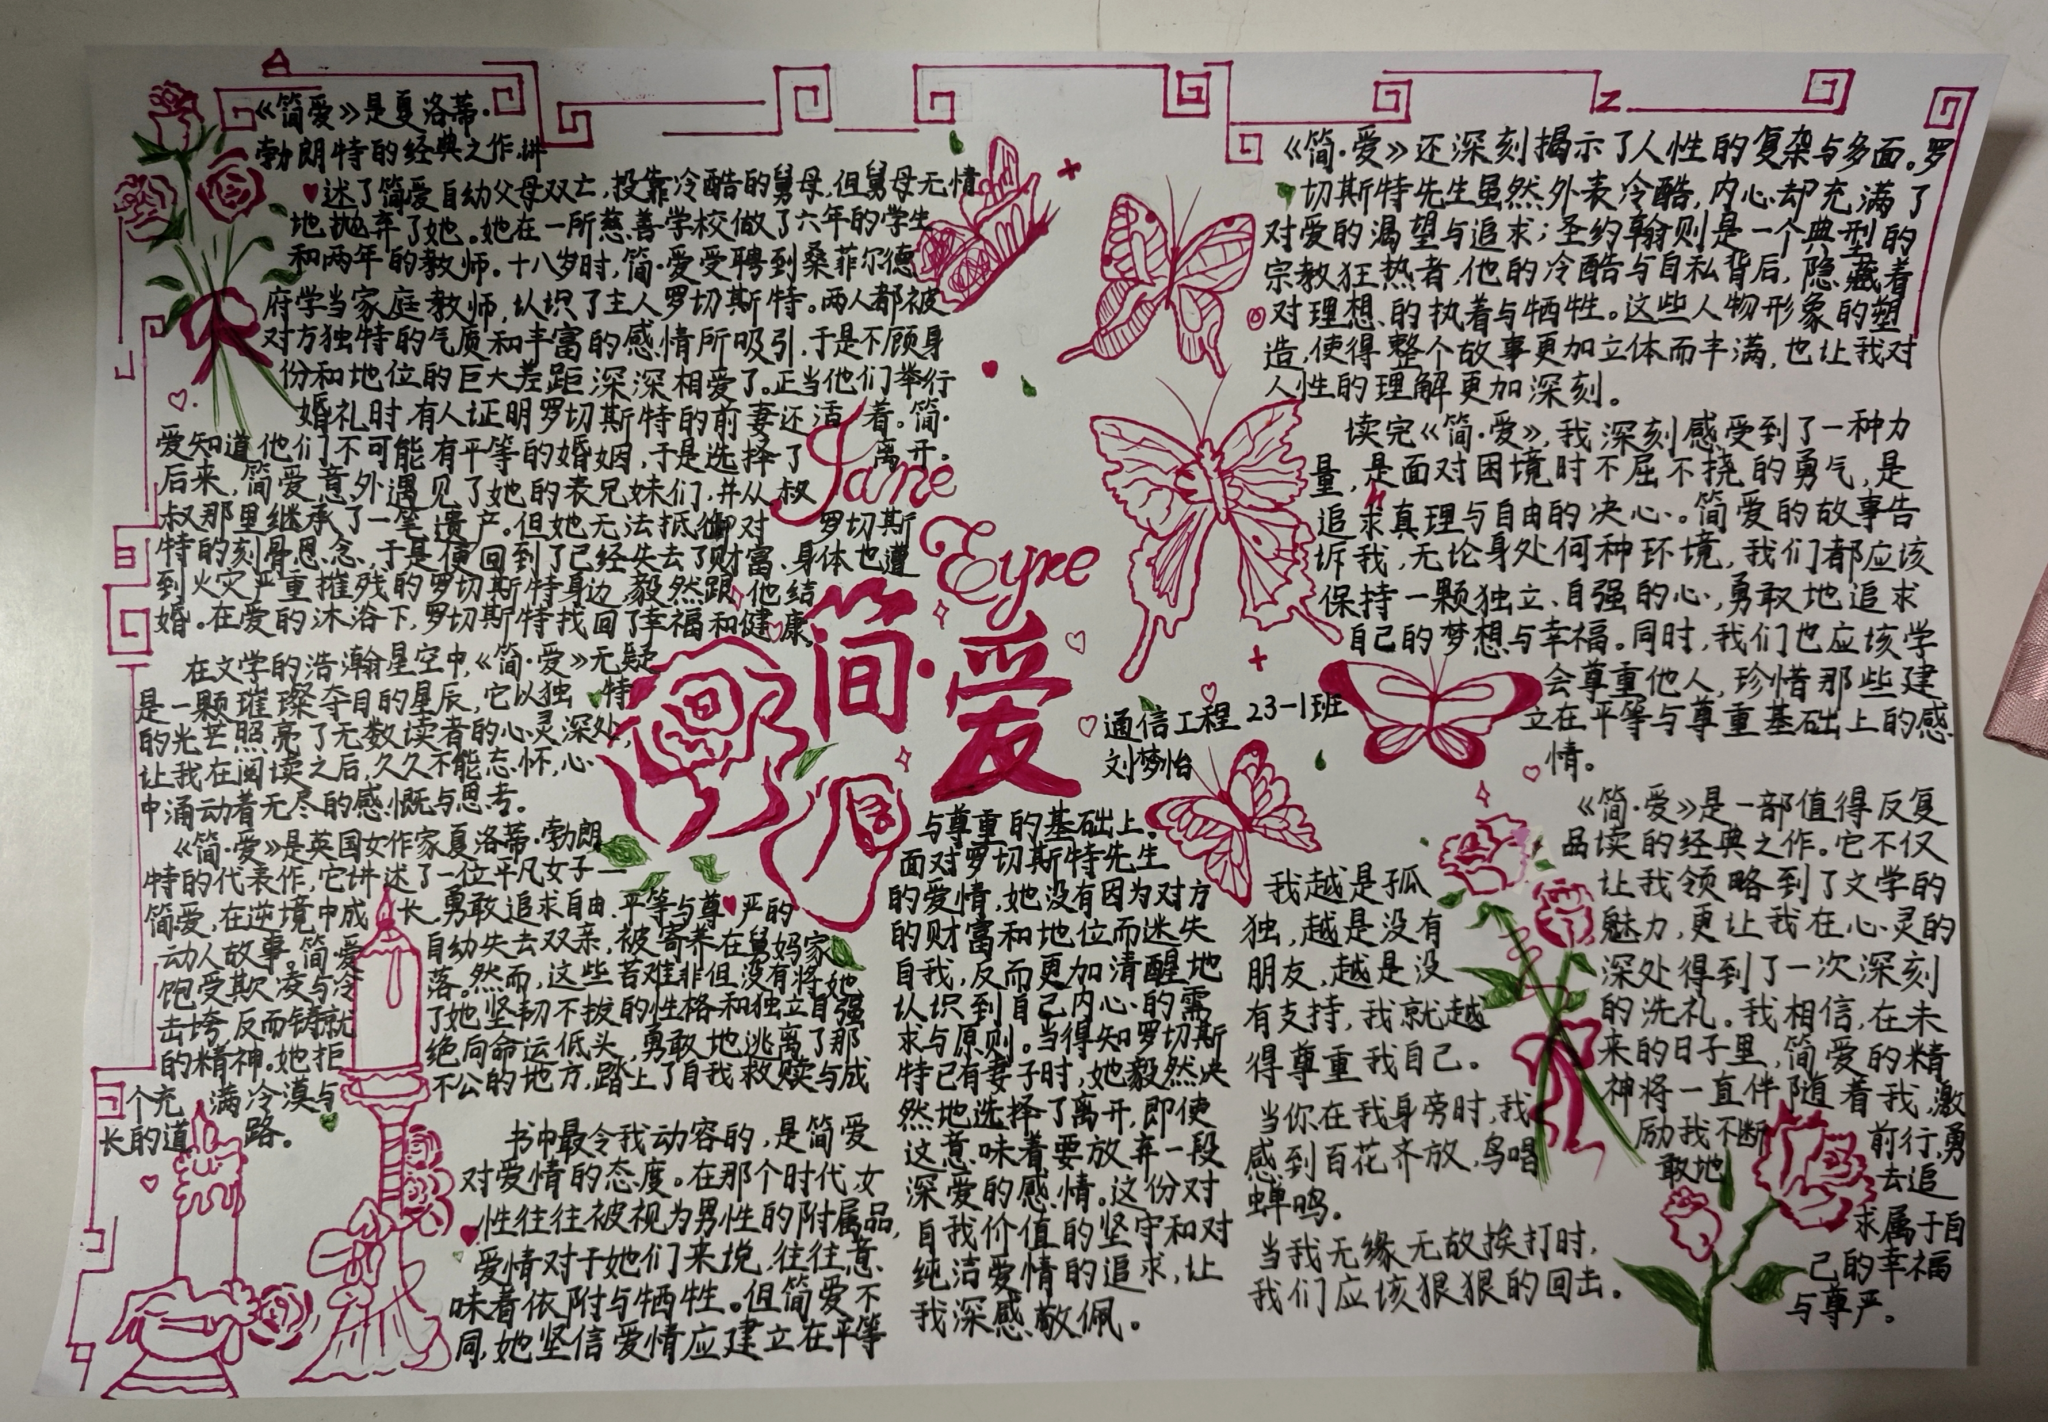 《简爱》是夏洛蒂·
勃朗特的经典之作,讲
述了简爱自幼父母双亡,投靠冷酷的舅母,但舅母无情
地抛弃了她。她在一所慈善学校做了六年的学生
和两年的教师。十八岁时,简·爱受聘到桑菲尔德
府学当家庭教师,认识了主人罗切斯特。两人都被
对方独特的气质和丰富的感情所吸引,于是不顾身
份和地位的巨大差距深深相爱了。正当他们举行
婚礼时,有人证明罗切斯特的前妻还活着。简·
爱知道他们不可能有平等的婚姻,于是选择了离开。
后来,简爱意外遇见了她的表兄妹们,并从叔
叔那里继承了一笔遗产。但她无法抵御对罗切斯
特的刻骨思念,于是便回到了已经失去了财富、身体也遭
到火灾严重摧残的罗切斯特身边,毅然跟他结
婚。在爱的沐浴下,罗切斯特找回了幸福和健康。
在文学的浩瀚星空中,《简·爱》无疑
是一颗璀璨夺目的星辰,它以独特
的光芒照亮了无数读者的心灵深处,
让我在阅读之后,久久不能忘怀,心
中涌动着无尽的感慨与思考。
《简·爱》是英国女作家夏洛蒂·勃朗
特的代表作,它讲述了一位平凡女子一
简爱,在逆境中成长,勇敢追求自由、平等与尊严的
动人故事。简爱自幼失去双亲,被寄养在舅妈家
饱受欺凌与冷落。然而,这些苦难非但没有将她
击垮,反而铸就了她坚韧不拔的性格和独立自强
的精神。她拒绝向命运低头,勇敢地逃离了那
个充满冷漠与不公的地方,踏上了自我救赎与成
长的道路。
书中最令我动容的,是简爱
对爱情的态度。在那个时代,女
性往往被视为男性的附属品,
爱情对于她们来说,往往意
味着依附与牺牲。但简爱不
同,她坚信爱情应建立在平等
Jane
Eyre
简·爱
通信工程23-1班
刘梦怡
与尊重的基础上。
面对罗切斯特先生
的爱情,她没有因为对方
的财富和地位而迷失
自我,反而更加清醒地
认识到自己内心的需
求与原则。当得知罗切斯
特已有妻子时,她毅然决
然地选择了离开,即使
这意味着要放弃一段
深爱的感情。这份对
自我价值的坚守和对
纯洁爱情的追求,让
我深感敬佩。
《简·爱》还深刻揭示了人性的复杂与多面。罗
切斯特先生虽然外表冷酷,内心却充满了
对爱的渴望与追求;圣约翰则是一个典型的
宗教狂热者,他的冷酷与自私背后,隐藏着
对理想的执着与牺牲。这些人物形象的塑
造,使得整个故事更加立体而丰满,也让我对
人性的理解更加深刻。
读完《简·爱》,我深刻感受到了一种力
量,是面对困境时不屈不挠的勇气,是
追求真理与自由的决心。简爱的故事告
诉我,无论身处何种环境,我们都应该
保持一颗独立、自强的心,勇敢地追求
自己的梦想与幸福。同时,我们也应该学
会尊重他人,珍惜那些建
立在平等与尊重基础上的感
情。
我越是孤
独,越是没有
朋友,越是没
有支持,我就越
得尊重我自己。
当你在我身旁时,我
感到百花齐放,鸟唱
蝉鸣。
当我无缘无故挨打时,
我们应该狠狠的回击。
《简·爱》是一部值得反复
品读的经典之作。它不仅
让我领略到了文学的
魅力,更让我在心灵的
深处得到了一次深刻
的洗礼。我相信,在未
来的日子里,简爱的精
神将一直伴随着我,激
励我不断前行,勇
敢地去追
求属于自
己的幸福
与尊严。